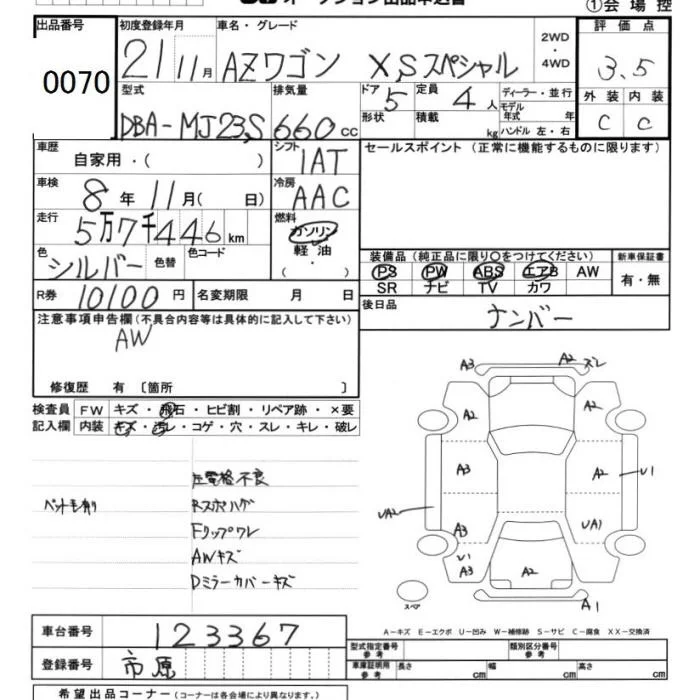 オークション出品申込書
①会場控
出品番号 0070
初度登録年月 21 11月
車名・グレード AZワゴン XSスペシャル
2WD・4WD
評価点 3.5
外装 C 内装 C
型式 DBA-MJ23S
排気量 660cc
ドア 5 形状
定員 4人 積載 kg
ディーラー・並行
モデル年式 年
ハンドル 左・右
車歴 自家用・( )
シフト 1AT
セールスポイント (正常に機能するものに限ります)
車検 8年11月( 日)
冷房 AAC
走行 5万7千446km
燃料 ガソリン 軽油 ・
色 シルバー 色替 色コード
装備品 (純正品に限り〇をつけてください)
PS PW ABS エアB AW
SR ナビ TV カワ
新車保証書 有・無
R券 10100円 名変期限 月 日
後日品 ナンバー
注意事項申告欄 (不具合内容等は具体的に記入して下さい)
AW
修復歴 有 〔箇所 〕
検査員記入欄
FW キズ・飛石・ヒビ割・リペア跡・×要
内装 キズ・汚レ・コゲ・穴・スレ・キレ・破レ
左電格不良
ペット毛有り
Rスポハゲ
Fリップワレ
AWキズ
Dミラーカバーキズ
A3 A2 ズレ
A2 A2
A3 A2 U1
UA2
A3 UA1
U1
A3 A2 A2
スペア
A1
A-キズ E-エクボ U-凹み W-補修跡 S-サビ C-腐食 XX-交換済
車台番号 123367
登録番号 市原
型式指定番号 参考
類別区分番号 参考
車庫証明用 参考 長さ cm 幅 cm 高さ cm
希望出品コーナー (コーナーは各会場により異なります。)